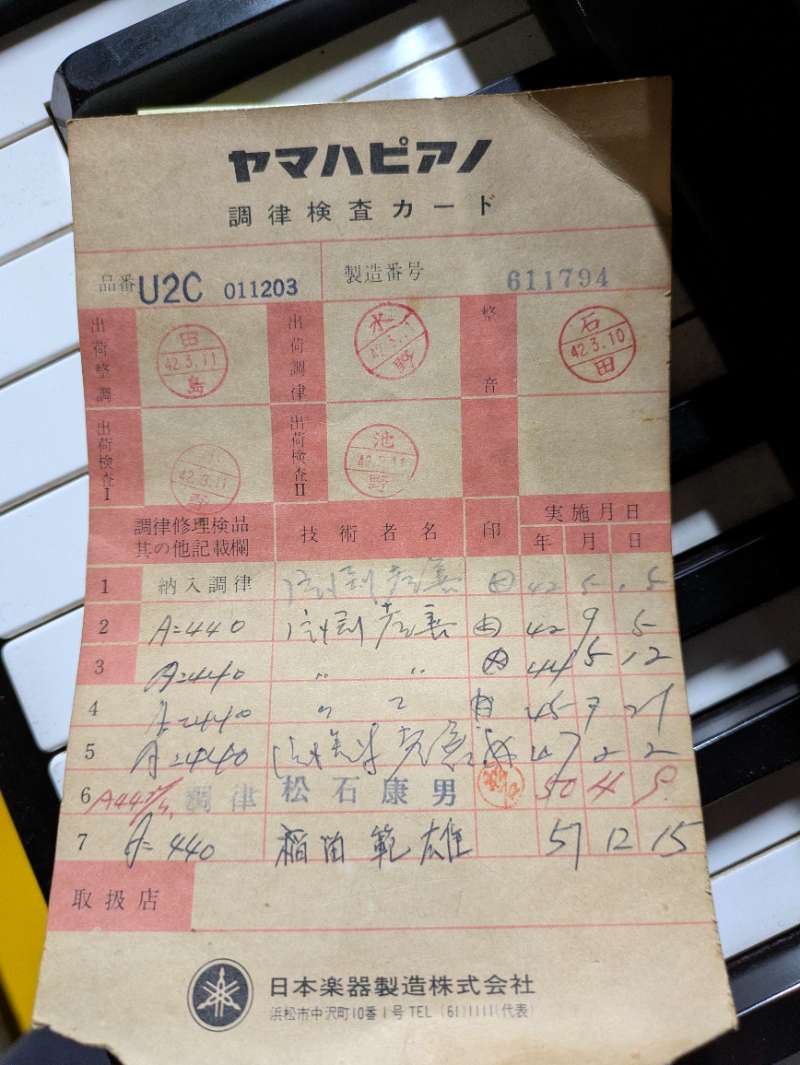 ヤマハピアノ
調律検査カード
品番 U2C 011203 製造番号 611794
出荷整調 田島 42.3.11 出荷調律 水野 42.3.11 整音 石田 42.3.10
出荷検査I 42.3.11 出荷検査II 池野 42.3.11
調律修理検品其の他記載欄 技術者名 印 実施月日
年 月 日
1 納入調律 42 5 5
2 A=440 42 9 5
3 A=440 〃 〃 44 5 12
4 A=440 45 7 21
5 A=440 47 2 2
6 調律 松石康男 50 4 9
7 A=440 稲田範雄 57 12 15
取扱店
日本楽器製造株式会社
浜松市中沢町10番1号 TEL (61)1111(代表)